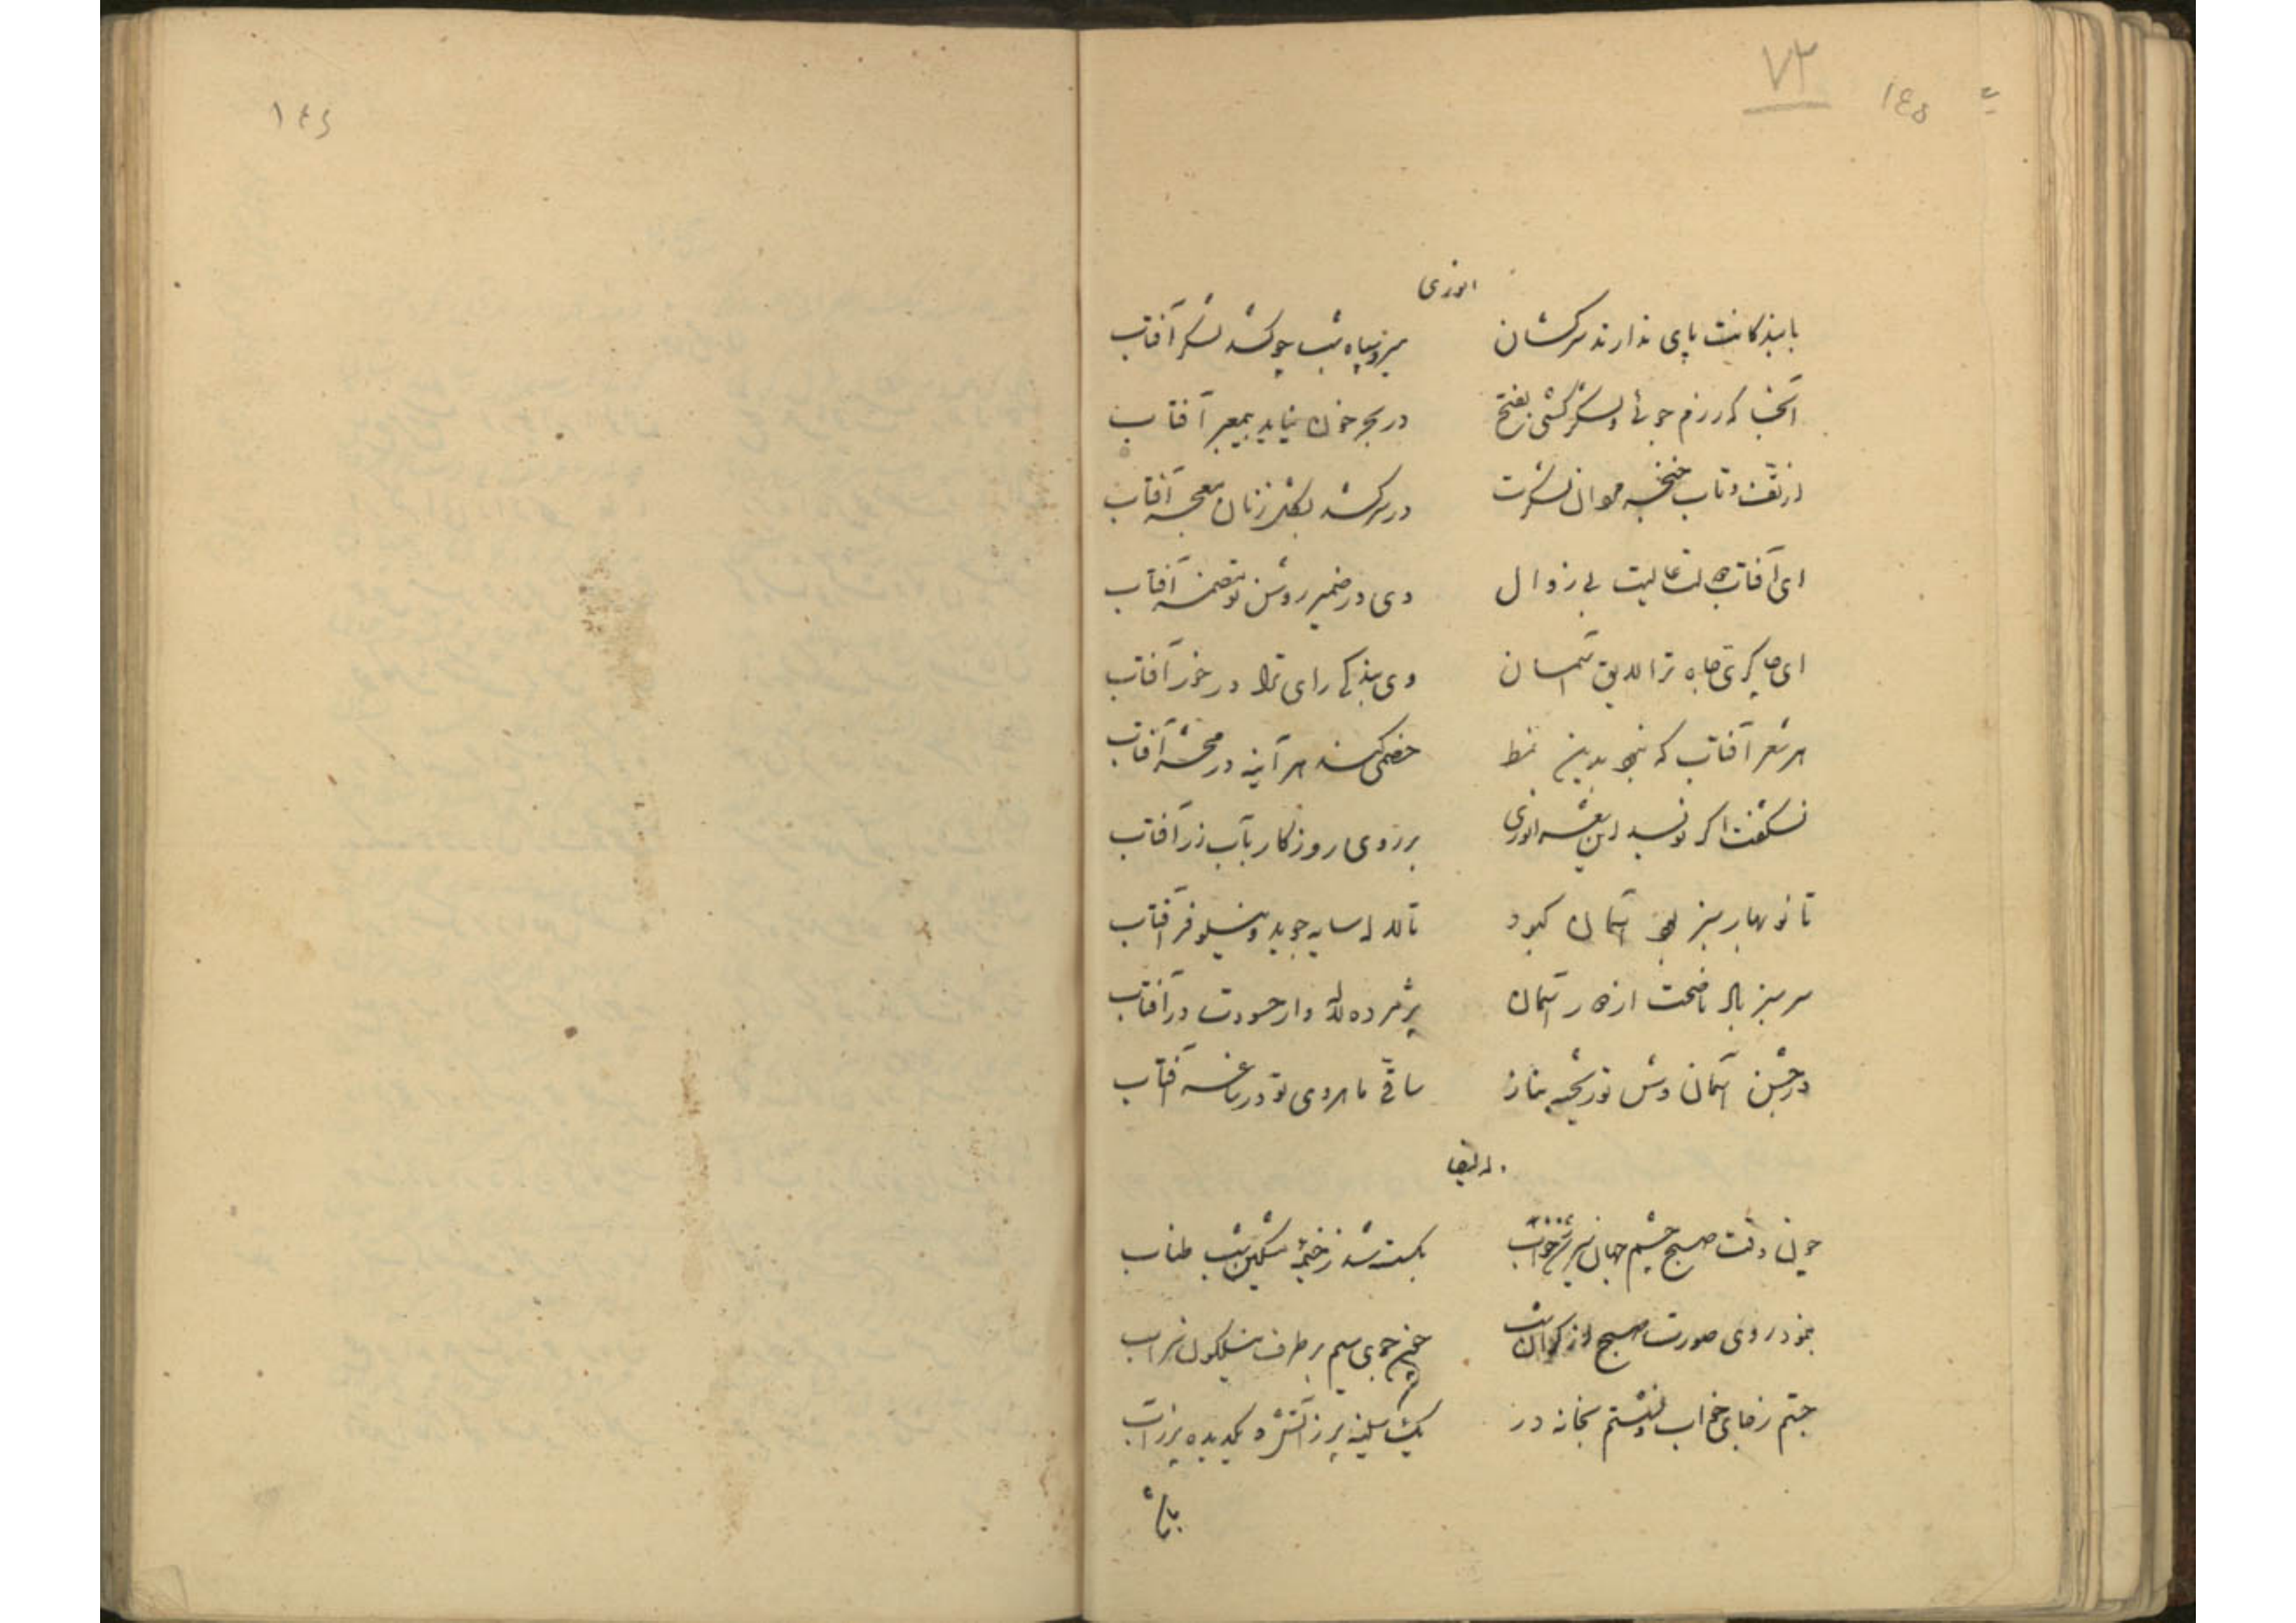 ۷۲
۱۴۵
۱۴۶
انوری
با بندگانت پای ندارند سرکشان
نیزه سپاه شب چو کشد لشکر آفتاب
آنجا که رزم جوئی و لشکر کشی بفتح
در بحر خون نیاید بمعبر آفتاب
از تف و تاب خنجر مردان لشکرت
در سر کشد بشکل زنان معجر آفتاب
ای آفتاب دولت عالیت بی زوال
وی در ضمیر روشن تو مضمر آفتاب
ای چاکری جاه ترا لایق آسمان
وی بندگی رای ترا در خور آفتاب
هر شعر آفتاب که نبود بدین نمط
خصمی کند هر آینه در محشر آفتاب
نشکفت اگر نویسد این شعر انوری
بر روی روزگار بآب زر آفتاب
تا نوبهار سبز بود آسمان کبود
تا لاله سایه جوید و نیلوفر آفتاب
سر سبز باد ناصحت از دور آسمان
پژمرده لاله وار حسودت در آفتاب
در جشن آسمان وش تو ریخته بناز
ساقی ماهروی تو در ساغر آفتاب
وله ایضا
چون وقت صبح چشم جهان سیر شد ز خواب
بگسسته شد ز خیمه مشکین شب طناب
بنمود روی صورت صبح از کران شب
چون جوی سیم بر طرف نیلگون سراب
جستم ز جای خواب و نشستم بخانه در
یک سینه پر ز آتش و یک دیده پر ز آب